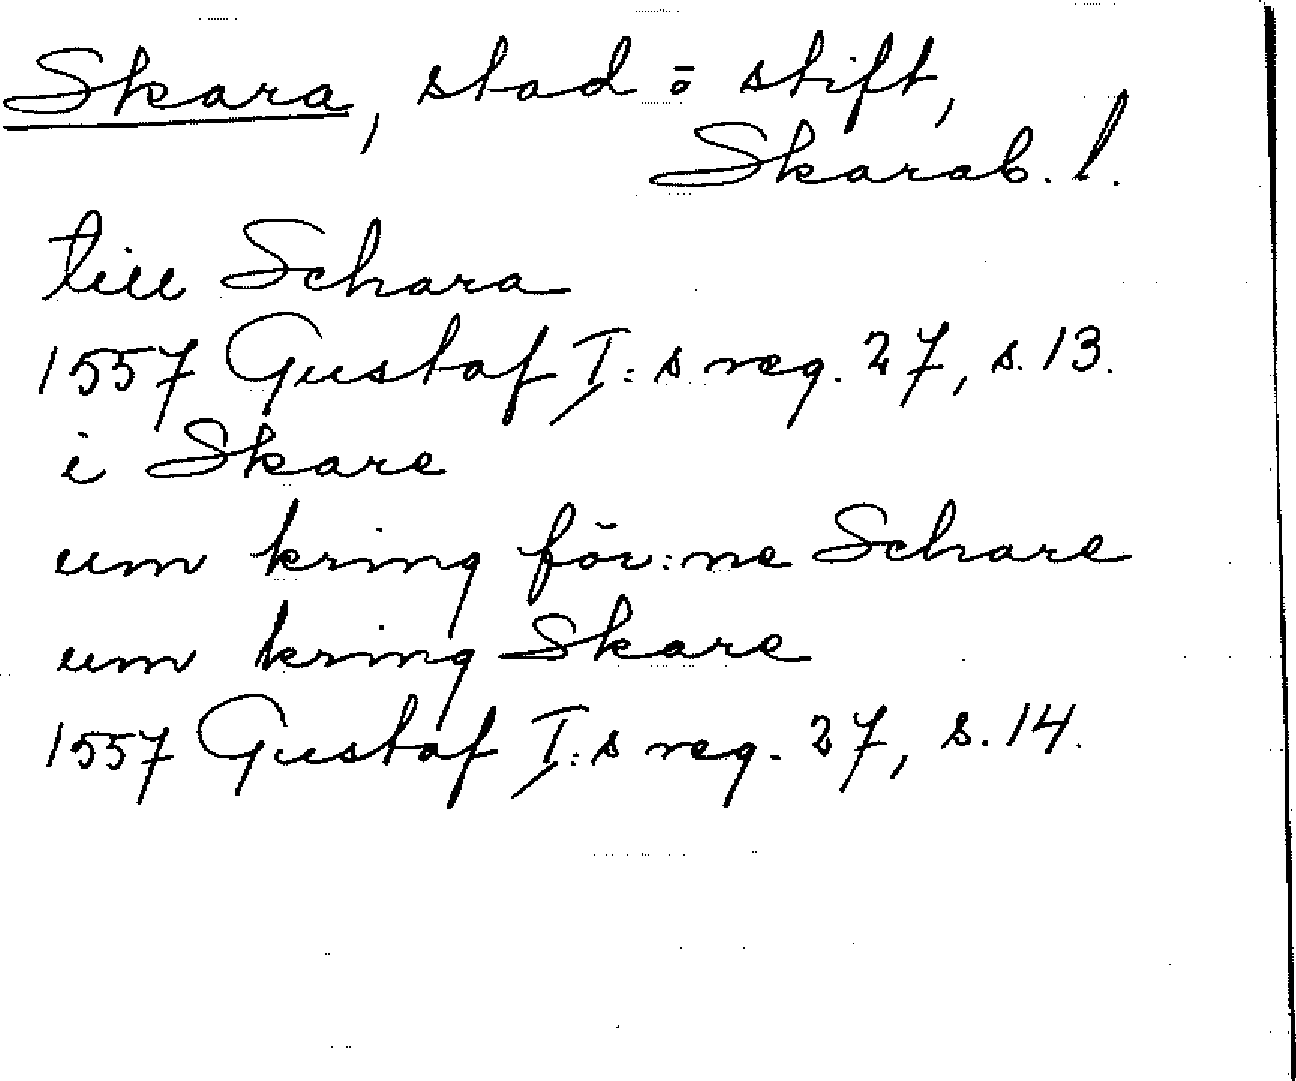 Skara, stad ō stift,
Skarab. l.
till Schara
1557 Gustaf I:s reg. 27, s. 13.
i Skare
um kring för:ne Schare
um kring Skare
1557 Gustaf I:s reg. 27, s. 14.